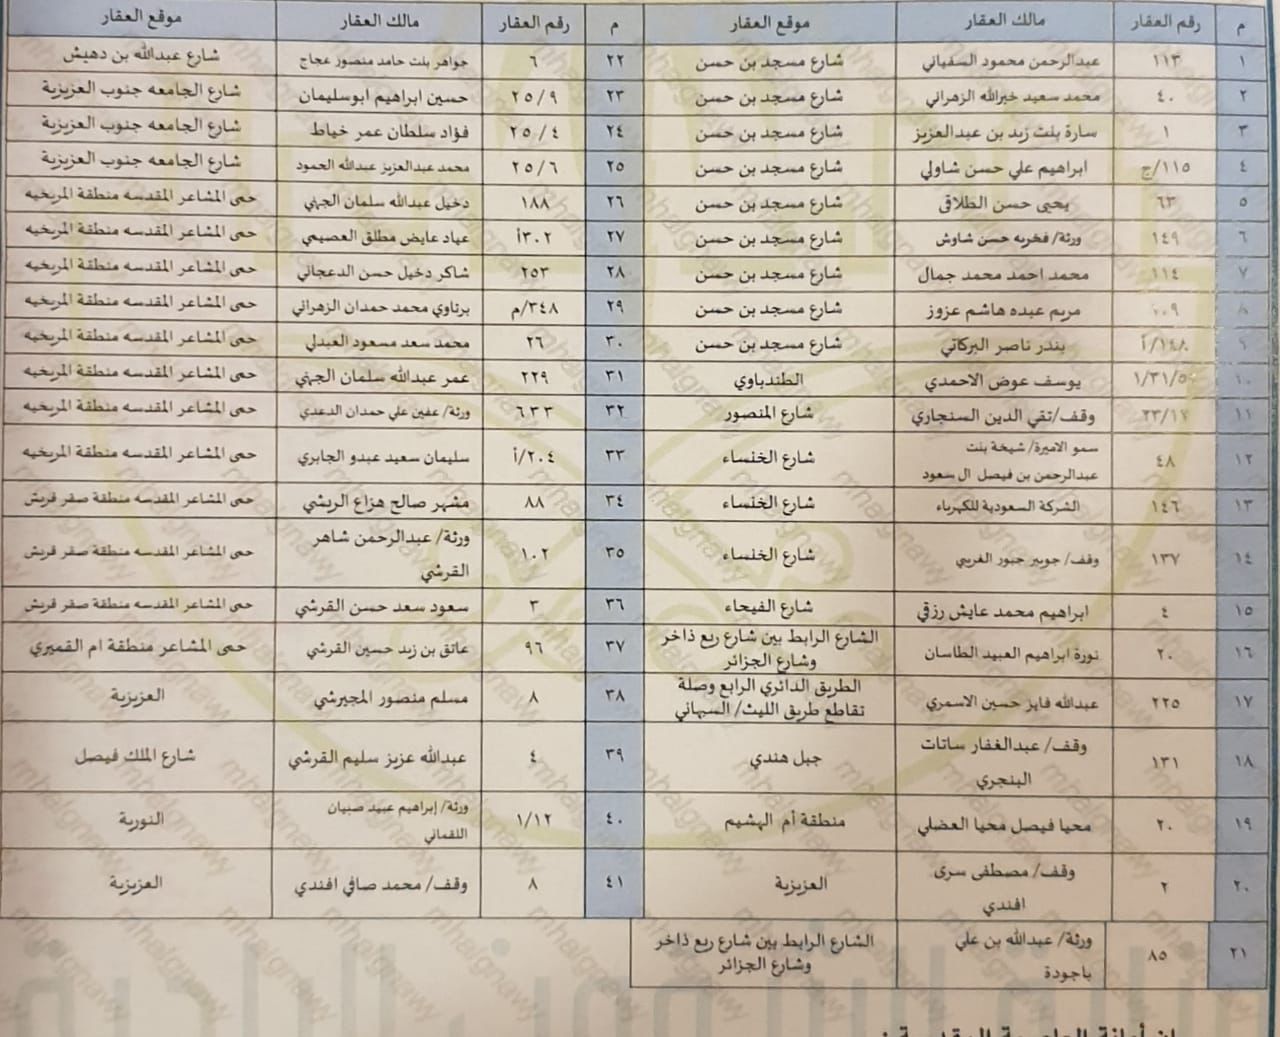 م رقم العقار مالك العقار موقع العقار م رقم العقار مالك العقار موقع العقار
١ ١١٣ عبدالرحمن محمود السفياني شارع مسجد بن حسن ٢٢ ٦ جواهر بنت حامد منصور عجاج شارع عبدالله بن دهيش
٢ ٤٠ محمد سعيد خيرالله الزهراني شارع مسجد بن حسن ٢٣ ٢٥/٩ حسين ابراهيم ابوسليمان شارع الجامعه جنوب العزيزية
٣ ١ سارة بنت زيد بن عبدالعزيز شارع مسجد بن حسن ٢٤ ٢٥/٤ فؤاد سلطان عمر خياط شارع الجامعه جنوب العزيزية
٤ ١١٥/ج ابراهيم علي حسن شاولي شارع مسجد بن حسن ٢٥ ٢٥/٦ محمد عبدالعزيز عبدالله الحمود شارع الجامعه جنوب العزيزية
٥ ٦٣ يحيى حسن الطلاقى شارع مسجد بن حسن ٢٦ ١٨٨ دخيل عبدالله سلمان الجهني حمى المشاعر المقدسه منطقة المريخيه
٦ ١٤٩ ورثة/ فخريه حسن شاوش شارع مسجد بن حسن ٢٧ ٣٠٢أ عياد عايض مطلق العصيمي حمى المشاعر المقدسه منطقة المريخيه
٧ ١١٤ محمد احمد محمد جمال شارع مسجد بن حسن ٢٨ ٢٥٣ شاكر دخيل حسن الدعجاني حمى المشاعر المقدسه منطقة المريخيه
٨ مريم عبده هاشم عزوز شارع مسجد بن حسن ٢٩ ٣٤٨/م برتاوي محمد حمدان الزهراني حمى المشاعر المقدسه منطقة المريخيه
٩ ١٤٨/أ بندر ناصر البركاتي شارع مسجد بن حسن ٣٠ ٢٦ محمد سعد مسعود العبدلي حمى المشاعر المقدسه منطقة المريخيه
١٠ يوسف عوض الاحمدي الطندباوي ٣١ ٢٢٩ عمر عبدالله سلمان الجهني حمى المشاعر المقدسه منطقة المريخيه
١١ ٢٣/١٧ وقف/تقي الدين السنجاري شارع المنصور ٣٢ ٦٣٣ ورثة/ عفين علي حمدان الدعدي حمى المشاعر المقدسه منطقة المريخيه
١٢ ٤٨ سمو الاميرة/ شيخة بنت
عبدالرحمن بن فيصل ال سعود شارع الخنساء ٣٣ ٢٠٤/أ سليمان سعيد عبدو الجابري حمى المشاعر المقدسه منطقة المريخيه
١٣ ١٤٦ الشركة السعودية للكهرباء شارع الخنساء ٣٤ ٨٨ مشهر صالح هزاع الريشي حمى المشاعر المقدسه منطقة صقر قريش
١٤ ١٣٧ وقف/ جويبر جبور الغريبي شارع الخنساء ٣٥ ١٠٢ ورثة/ عبدالرحمن شاهر
القرشي حمى المشاعر المقدسه منطقة صقر قريش
١٥ ٤ ابراهيم محمد عايش رزقي شارع الفيحاء ٣٦ ٣ سعود سعد حسن القرشي حمى المشاعر المقدسه منطقة صقر قريش
١٦ ٢٠ نورة ابراهيم العبيد الطاسان الشارع الرابط بين شارع ربع ذاخر
وشارع الجزائر ٣٧ ٩٦ عاتق بن زيد حسين القرشي حمى المشاعر منطقة ام القميري
١٧ ٢٢٥ عبدالله فايز حسين الاسمري الطريق الدائري الرابع وصلة
تقاطع طريق الليث/ السيهاني ٣٨ ٨ مسلم منصور المجيرشي العزيزية
١٨ ١٣١ وقف/ عبدالغفار ساتات
البنجري جبل هندي ٣٩ ٤ عبدالله عزيز سليم القرشي شارع الملك فيصل
١٩ ٢٠ محيا فيصل محيا العضلي منطقة أم الهشيم ٤٠ ١/١٢ ورثة/ إبراهيم عبيد صبيان
اللقماني النورية
٢٠ ٢ وقف/ مصطفى سرى
افندي العزيزية ٤١ ٨ وقف/ محمد صافي افندي العزيزية
٢١ ٨٥ ورثة/ عبدالله بن علي
باجودة الشارع الرابط بين شارع ربع ذاخر
وشارع الجزائر
mhalgnawy